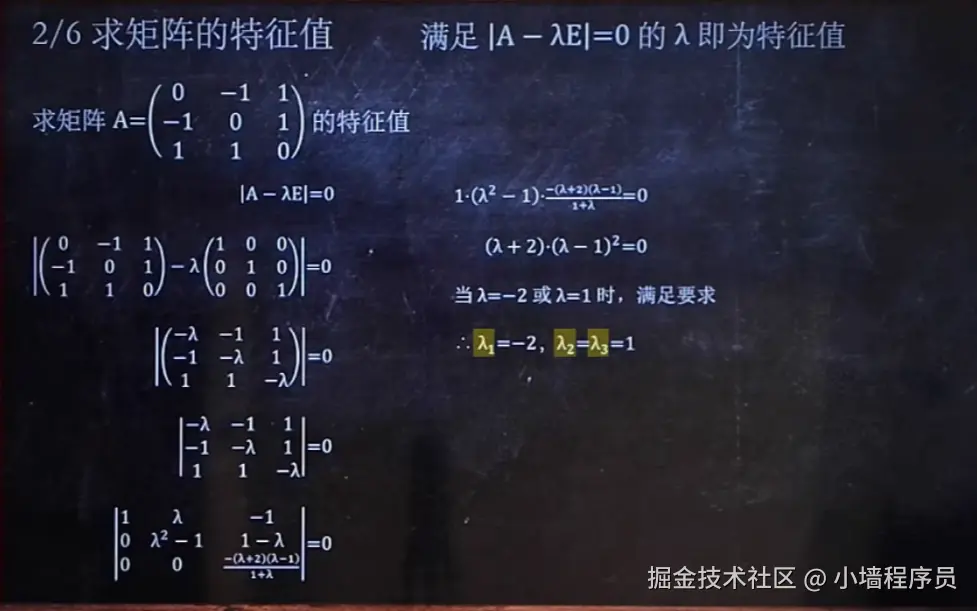 2/6 求矩阵的特征值
满足 |A − λE|=0 的 λ 即为特征值
求矩阵 A=
(0 −1 1
−1 0 1
1 1 0)
的特征值
|A − λE|=0
|(0 −1 1
−1 0 1
1 1 0) − λ (1 0 0
0 1 0
0 0 1)|=0
|(−λ −1 1
−1 −λ 1
1 1 −λ)|=0
|−λ −1 1
−1 −λ 1
1 1 −λ|=0
|1 λ −1
0 λ² − 1 1 − λ
0 0 −(λ+2)(λ−1)/1+λ|=0
1·(λ² − 1)·−(λ+2)(λ−1)/1+λ=0
(λ + 2)·(λ − 1)²=0
当 λ=−2 或 λ=1 时，满足要求
∴ λ₁=−2, λ₂=λ₃=1
掘金技术社区 @ 小墙程序员